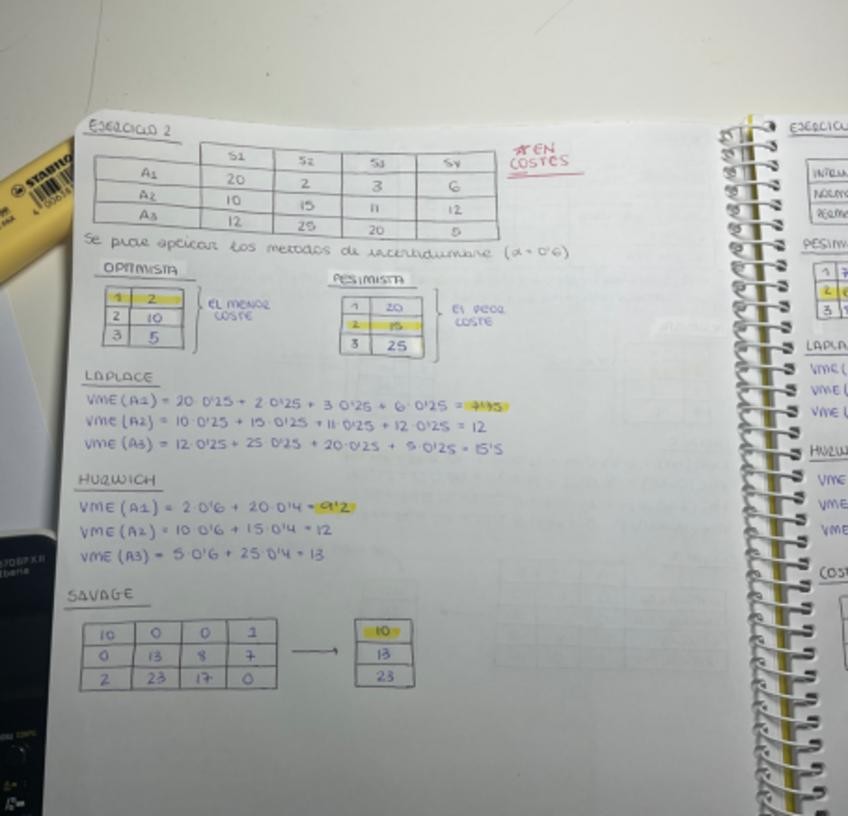 EJERCICIO 2
S1 S2 S3 S4
A1 20 2 3 6
A2 10 15 11 12
A3 12 25 20 5
* EN COSTES
Se pide aplicar los metodos de incertidumbre (α = 0'6)
OPTIMISTA
1 2
2 10
3 5
EL MENOR
COSTE
PESIMISTA
1 20
2 15
3 25
El PEOR
COSTE
LAPLACE
VME (A1) = 20·0'25 + 2·0'25 + 3·0'25 + 6·0'25 = 7'75
VME (A2) = 10·0'25 + 15·0'25 + 11·0'25 + 12·0'25 = 12
VME (A3) = 12·0'25 + 25·0'25 + 20·0'25 + 5·0'25 = 15'5
HURWICH
VME (A1) = 2·0'6 + 20·0'4 = 9'2
VME (A2) = 10·0'6 + 15·0'4 = 12
VME (A3) = 5·0'6 + 25·0'4 = 13
SAVAGE
10 0 0 1
0 13 8 7
2 23 17 0
10
13
23
STABILO
EJERCICI
PESIM
LAPLA
VME (
VME (
VME (
HURW
VME
VME
VME
COST